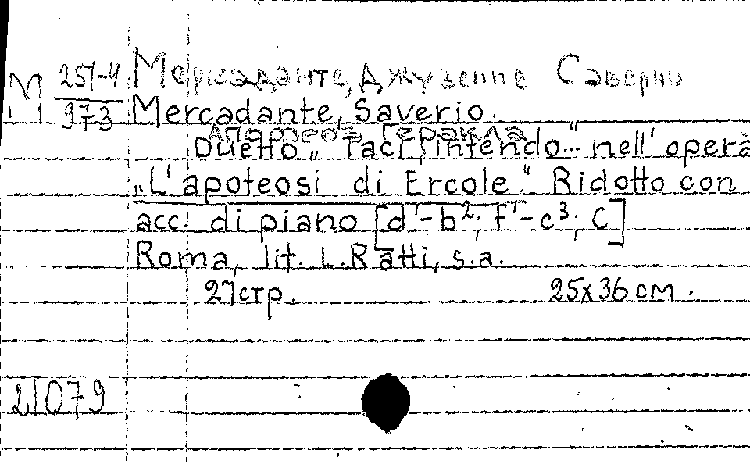 М 251-4/973 Меркаданте, Джузеппе Саверио
Mercadante, Saverio.
Апофеоз Геракла
Duetto „Taci, intendo..." nell' opera
„L'apoteosi di Ercole". Ridotto con
acc. di piano [d'-b²; f'-c³; C]
Roma, lit. L. Ratti, s.a.
27 стр. 25x36 см.
21079